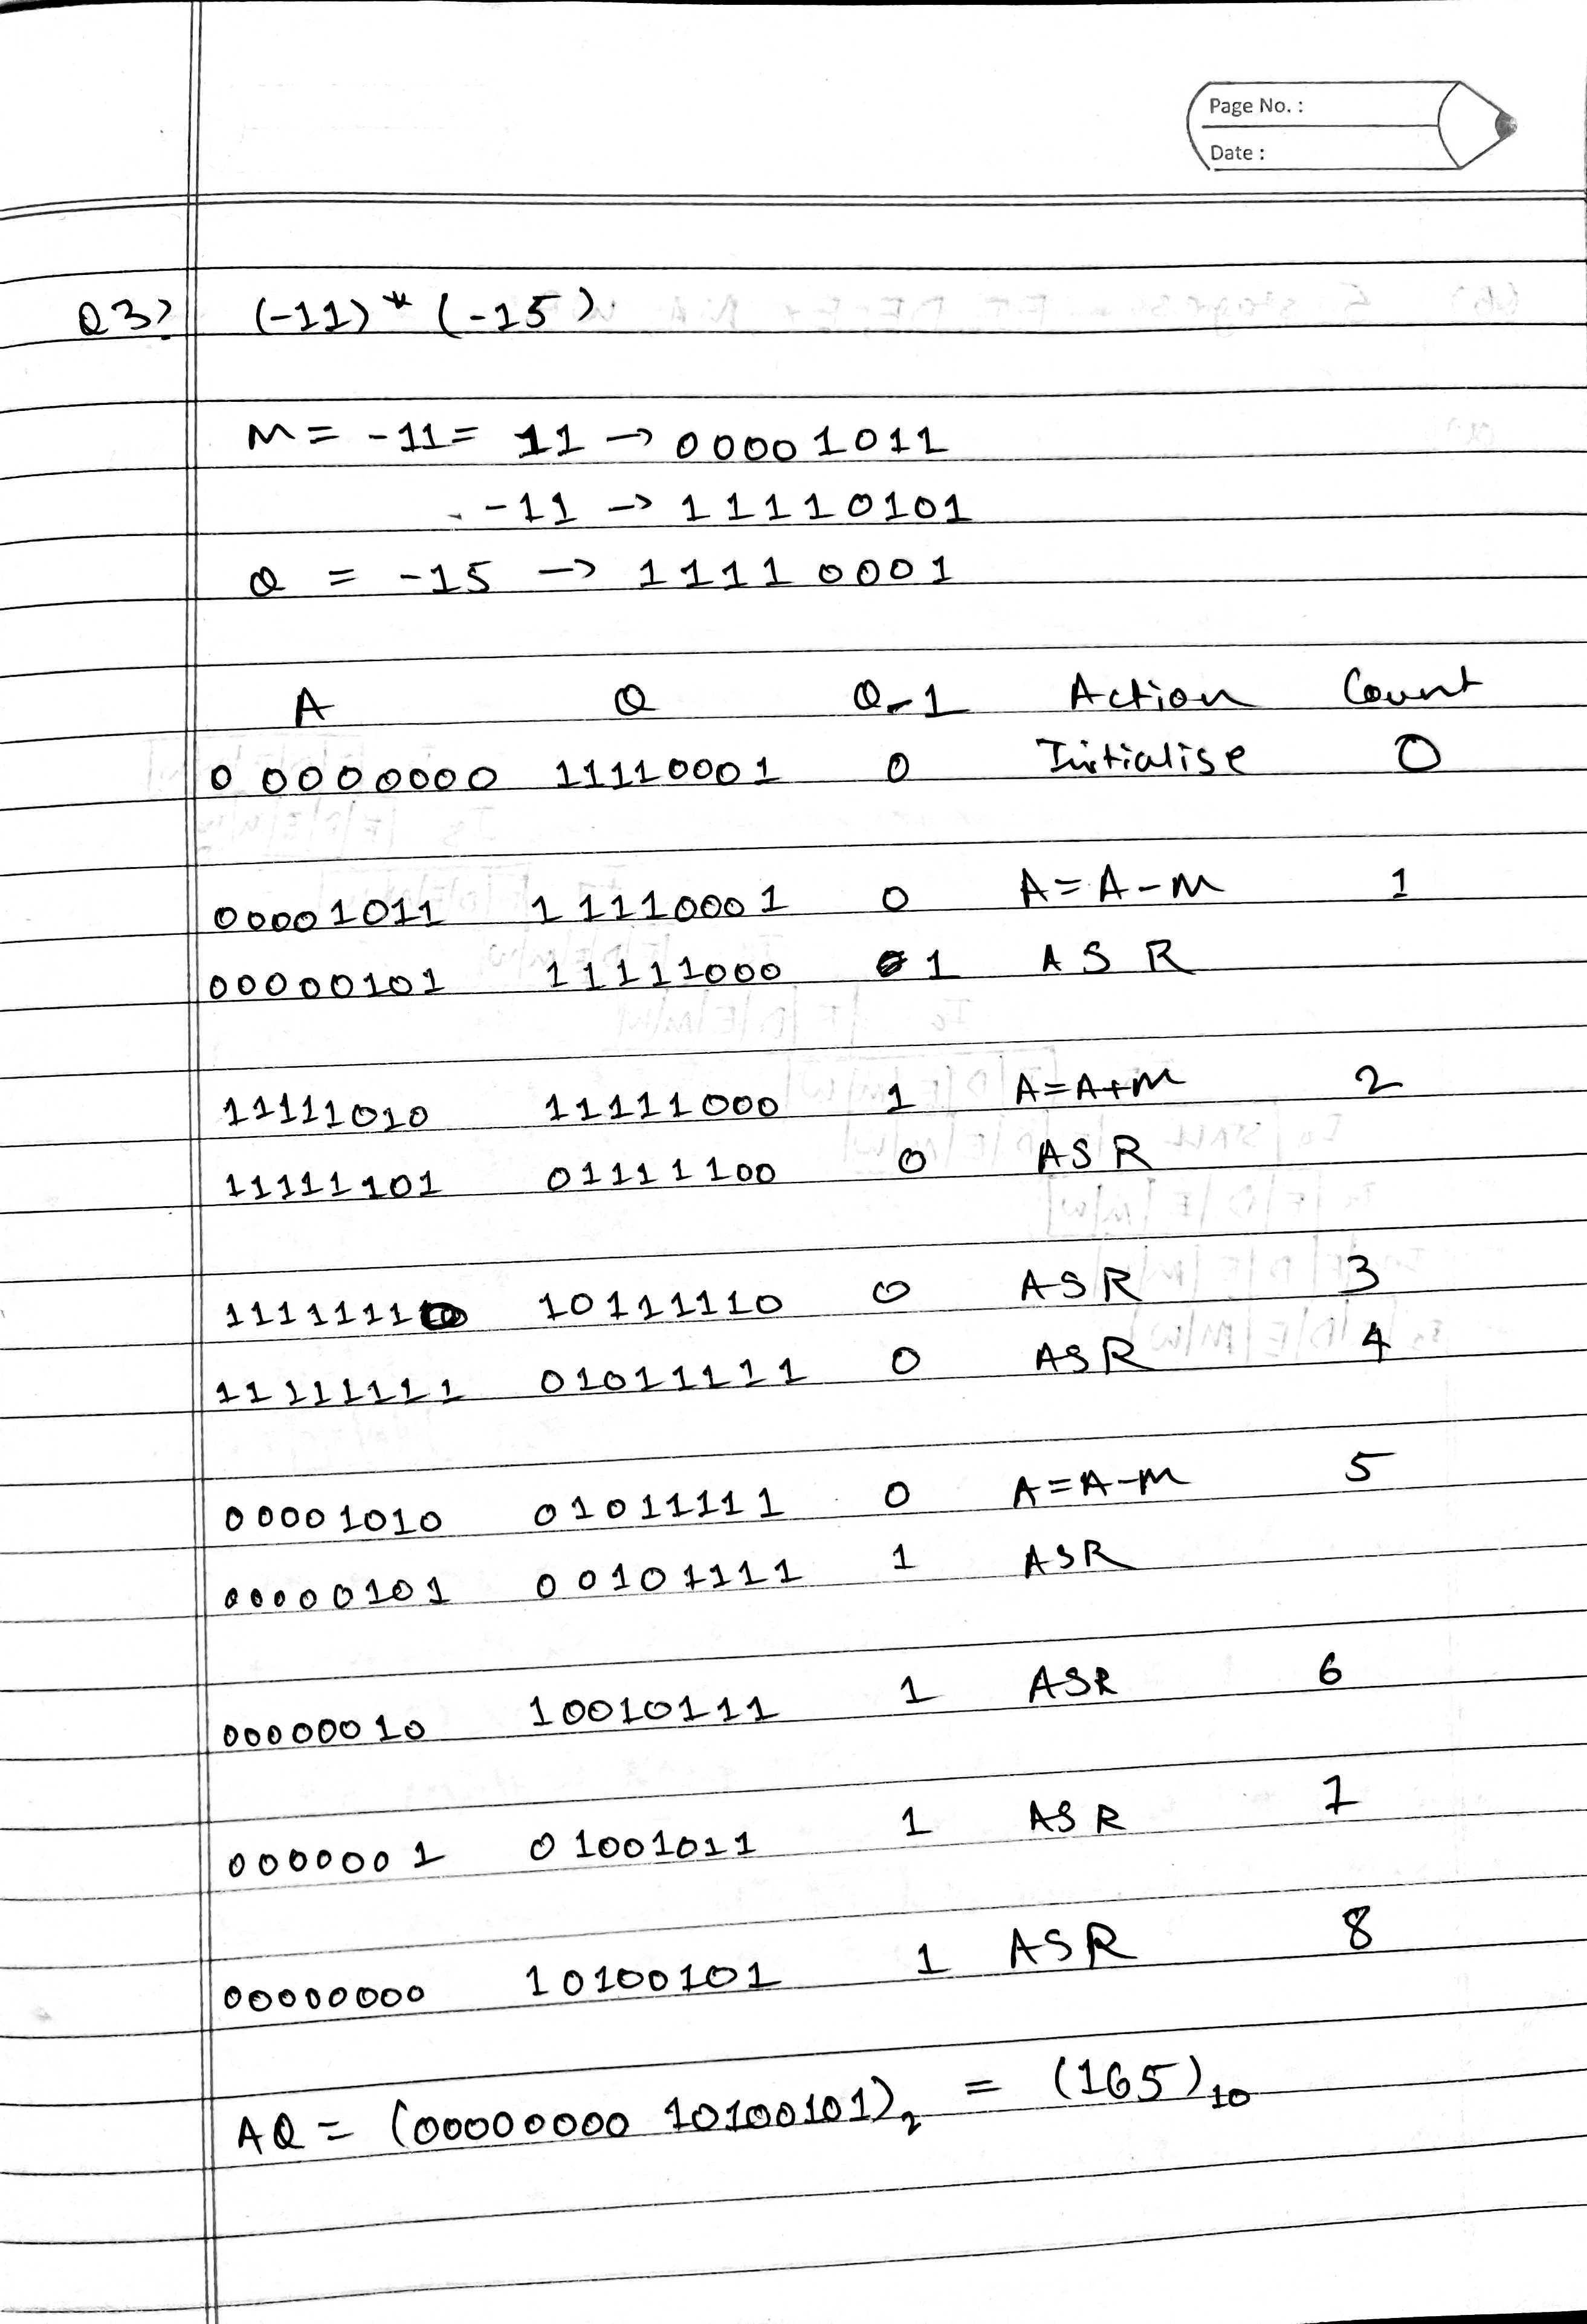 Page No. :
Date :
Q3> (-11) * (-15)
M = -11 = 11 → 00001011
-11 → 11110101
Q = -15 → 11110001
A Q Q-1 Action Count
00000000 11110001 0 Initialise 0
00001011 11110001 0 A = A - M 1
00000101 11111000 1 ASR
11111010 11111000 1 A = A + M 2
11111101 01111100 0 ASR
11111110 10111110 0 ASR 3
11111111 01011111 0 ASR 4
00001010 01011111 0 A = A - M 5
00000101 00101111 1 ASR
00000010 10010111 1 ASR 6
0000001 01001011 1 ASR 7
00000000 10100101 1 ASR 8
AQ = (00000000 10100101)2 = (165)10